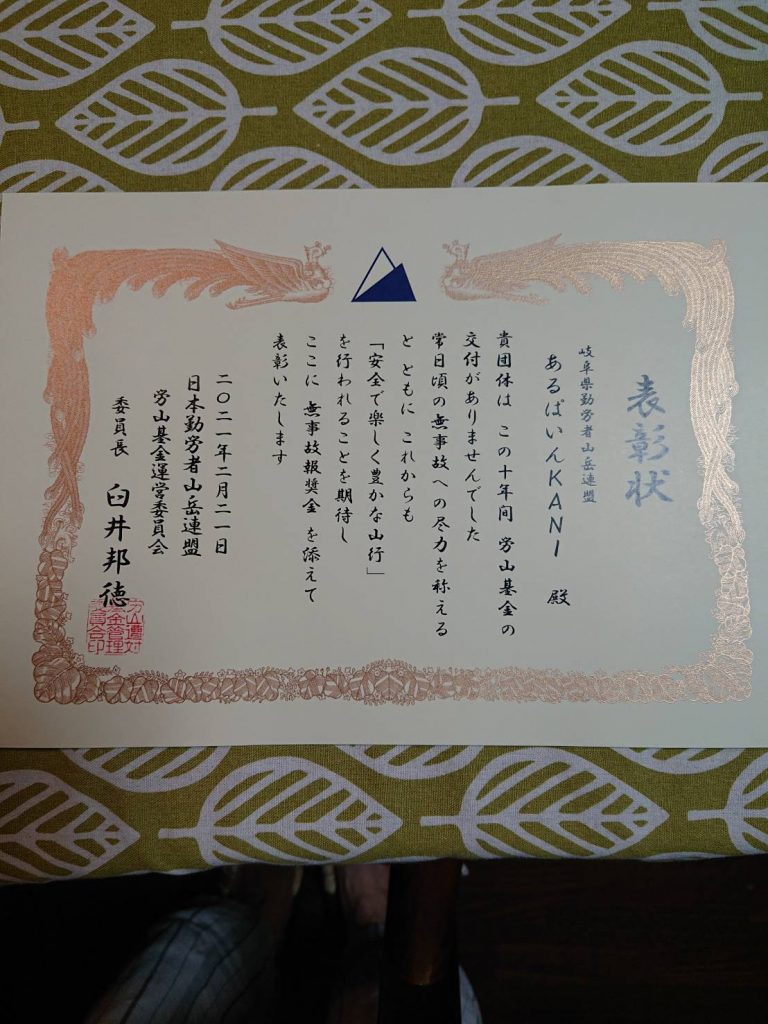 表彰状
岐阜県勤労者山岳連盟
あるぱいんKANI 殿
貴団体は この十年間 労山基金の
交付がありませんでした
常日頃の無事故への尽力を称える
と ともに これからも
「安全で楽しく豊かな山行」
を行われることを期待し
ここに 無事故報奨金 を添えて
表彰いたします
二〇二一年二月二一日
日本勤労者山岳連盟
労山基金運営委員会
委員長 臼井邦徳